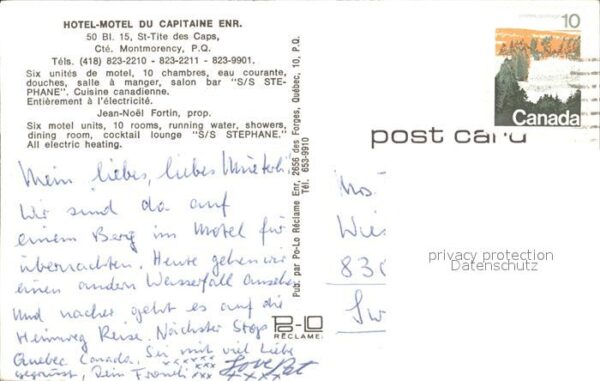 HOTEL-MOTEL DU CAPITAINE ENR.
50 Bl. 15, St-Tite des Caps,
Cté. Montmorency, P.Q.
Téls. (418) 823-2210 - 823-2211 - 823-9901.
Six unités de motel, 10 chambres, eau courante,
douches, salle à manger, salon bar "S/S STE-
PHANE". Cuisine canadienne.
Entièrement à l'électricité.
Jean-Noël Fortin, prop.
Six motel units, 10 rooms, running water, showers,
dining room, cocktail lounge "S/S STEPHANE."
All electric heating.
Mein liebes, liebes Mueterli
Wir sind da auf
einem Berg im Motel für
übernachten. Heute gehen wir
einen andern Wasserfall ansehen
Und nacher geht es auf die
Heimweg Reise. Nächster Stop
Quebec Canada. Sei mit viel Liebe
gegrüsst, Dein Franceli xxx
xxxxxx
Love Pat
xxxx
Pub. par Po-Lo Réclame Enr. 2656 des Forges, Québec, 10, P.Q.
Tél. 653-9910
Po-Lo
RÉCLAME
10
Canada
post card
Wies
830
Sw
privacy protection
Datenschutz